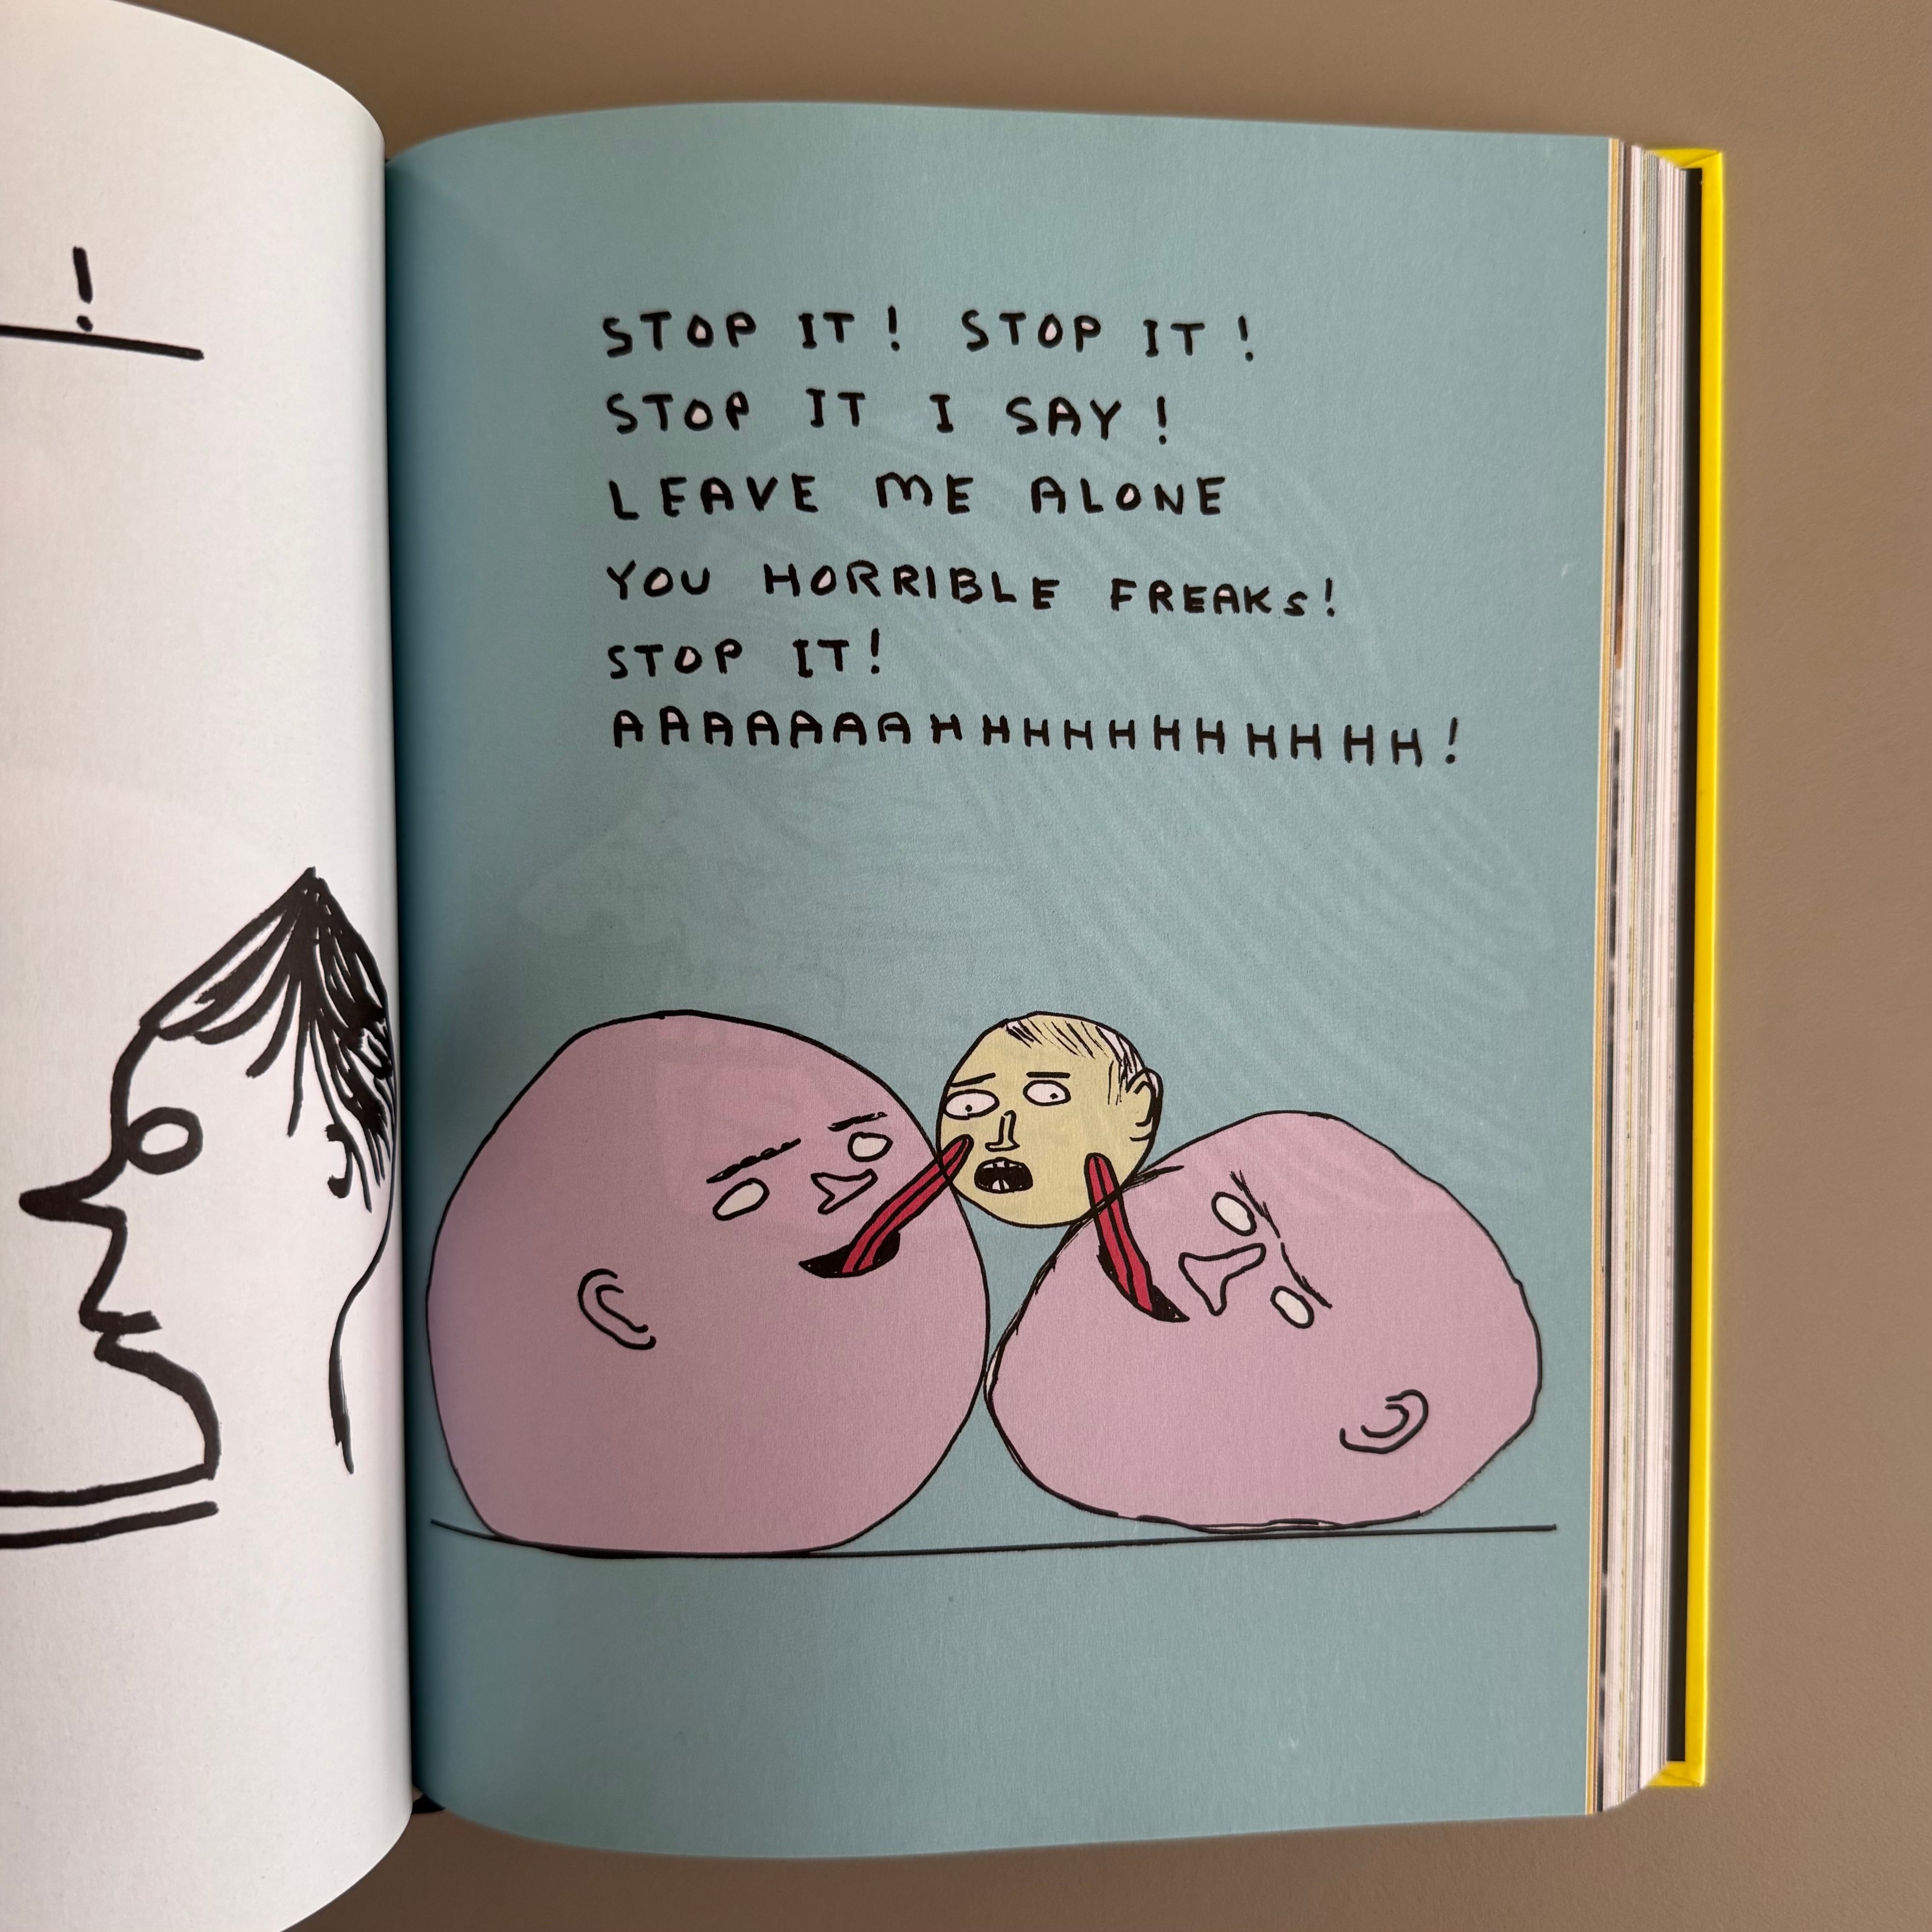 !
STOP IT! STOP IT!
STOP IT I SAY!
LEAVE ME ALONE
YOU HORRIBLE FREAKS!
STOP IT!
AAAAAAAHHHHHHHHHHH!